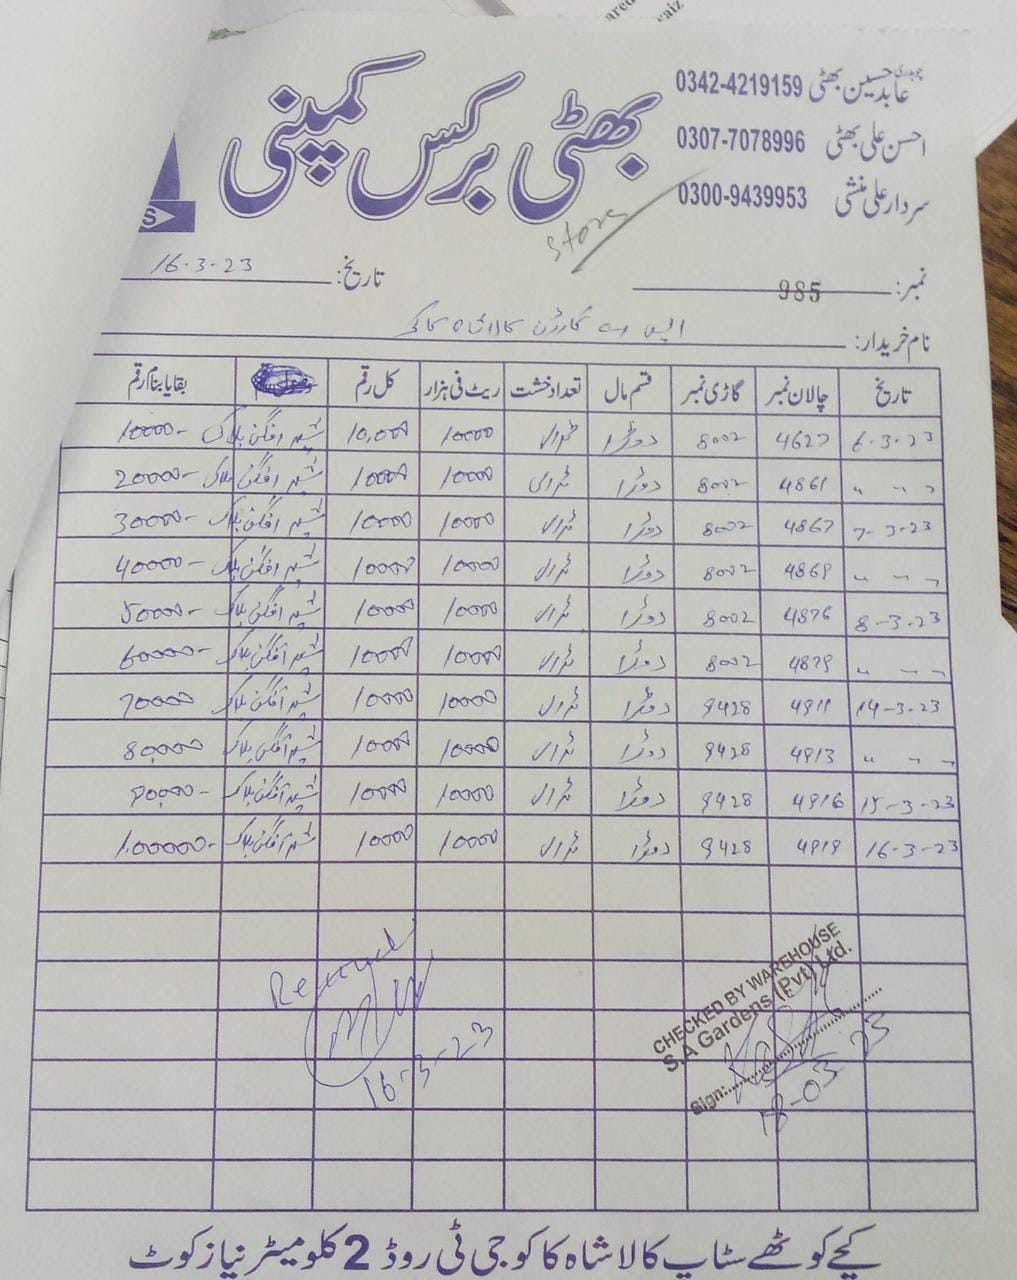 بھٹی برکس کمپنی
چوہدری عابد حسین بھٹی 0342-4219159
احسن علی بھٹی 0307-7078996
سردار علی منشی 0300-9439953
Store
نمبر: 985 تاریخ: 16-3-23
نام خریدار: ایس اے گارڈن کالا شاہ کاکو
تاریخ چالان نمبر گاڑی نمبر قسم مال تعداد خشت ریٹ فی ہزار کل رقم بقایا بنام رقم
6-3-23 4627 8002 دوڑا ٹرال 10000 10,000 شیر افگن بلاک 10000-
" - - 4861 8002 دوڑا ٹرالی 10000 10000 شیر افگن بلاک 20000-
7-3-23 4867 8002 دوڑا ٹرال 10000 10000 شیر افگن بلاک 30000-
" - - 4869 8002 دوڑا ٹرال 10000 10000 شیر افگن بلاک 40000-
8-3-23 4876 8002 دوڑا ٹرال 10000 10000 شیر افگن بلاک 50000-
" - - 4879 8002 دوڑا ٹرال 10000 10000 شیر افگن بلاک 60000-
14-3-23 4911 9428 دوڑا ٹرال 10000 10000 شیر افگن بلاک 70000
" - - 4913 9428 دوڑا ٹرال 10000 10000 شیر افگن بلاک 80,000
15-3-23 4916 9428 دوڑا ٹرال 10000 10000 شیر افگن بلاک 90,000-
16-3-23 4919 9428 دوڑا ٹرال 10000 10000 شیر افگن بلاک 1,00000-
Received
16-3-23
CHECKED BY WAREHOUSE
S.A Gardens (Pvt) Ltd.
Sign:
18-03-23
کچے کوٹھے سٹاپ کالا شاہ کاکو جی ٹی روڈ 2 کلومیٹر نیاز کوٹ